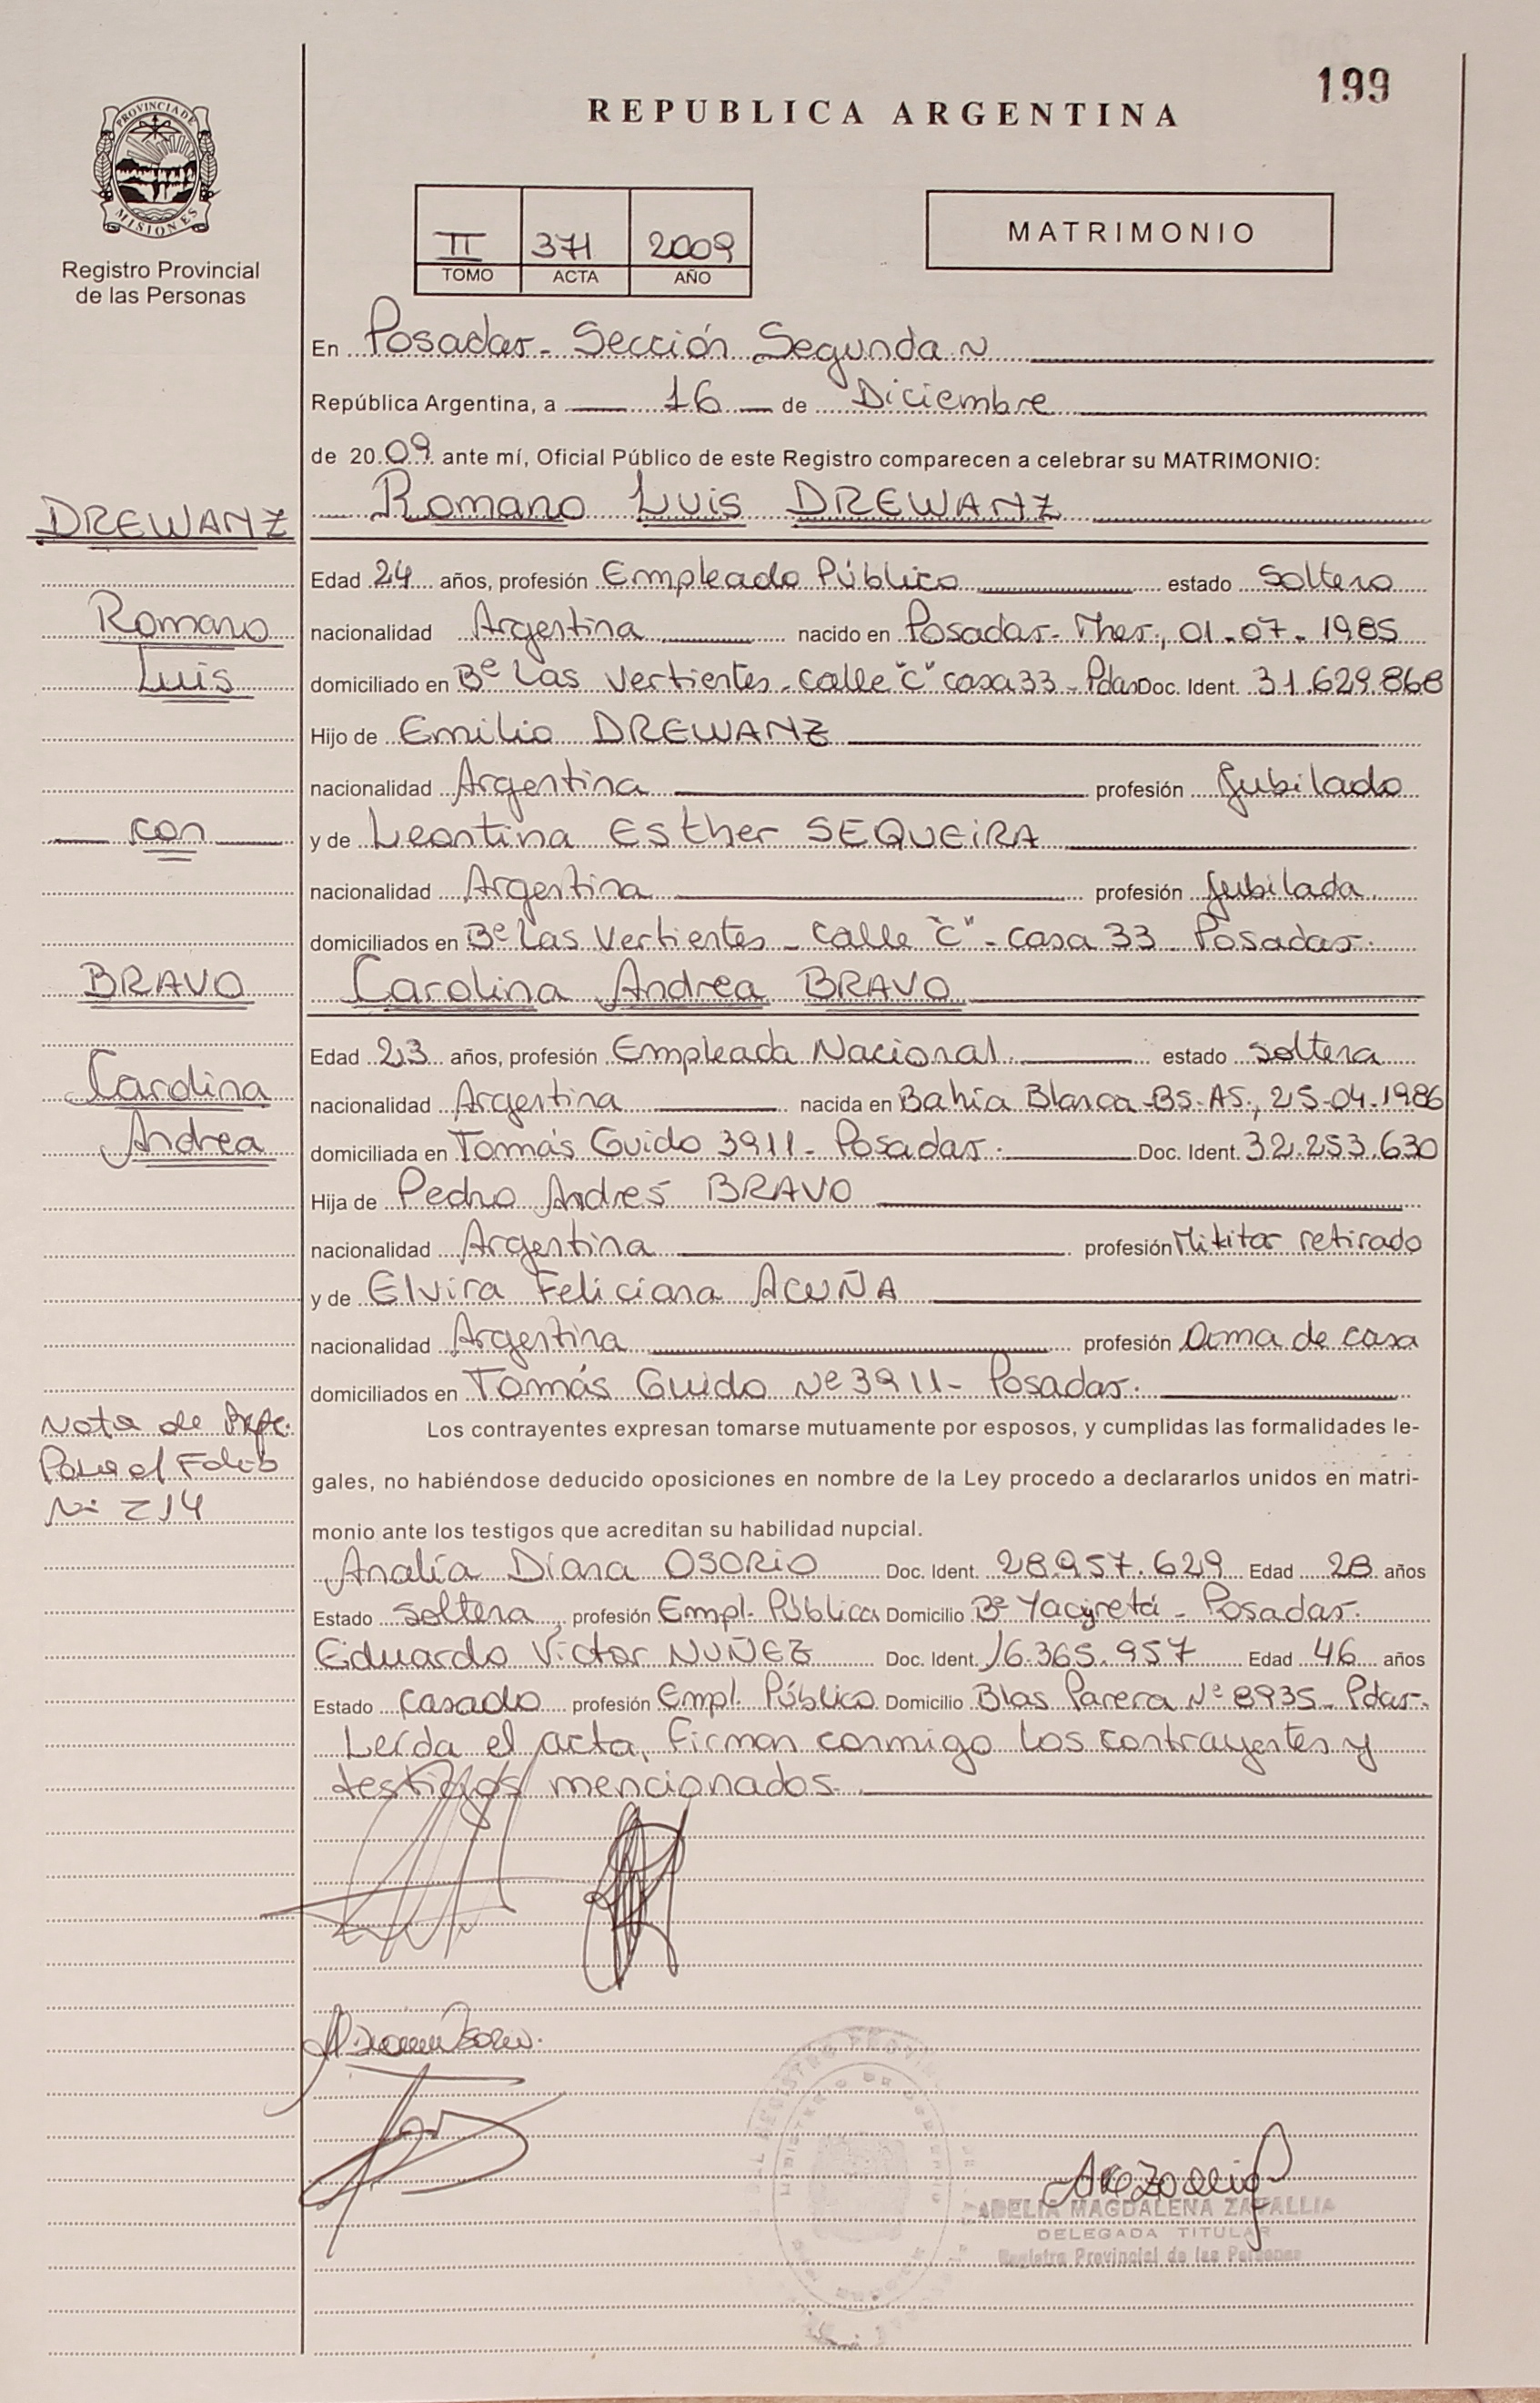 199
REPUBLICA ARGENTINA
PROVINCIA DE
MISIONES
Registro Provincial
de las Personas
II 371 2009
TOMO ACTA AÑO
MATRIMONIO
En Posadas - Sección Segunda
República Argentina, a 16 de Diciembre
de 2009 ante mí, Oficial Público de este Registro comparecen a celebrar su MATRIMONIO:
DREWANZ
Romano Luis DREWANZ
Edad 24 años, profesión Empleado Público estado soltero
Romano
nacionalidad Argentina nacido en Posadas - Mnes, 01-07-1985
Luis
domiciliado en Bº Las Vertientes - calle "C" casa 33 - Pdas Doc. Ident. 31.629.868
Hijo de Emilio DREWANZ
nacionalidad Argentina profesión Jubilado
con
y de Leontina Esther SEQUEIRA
nacionalidad Argentina profesión Jubilada.
domiciliados en Bº Las Vertientes - calle "C" - casa 33 - Posadas.
BRAVO
Carolina Andrea BRAVO
Edad 23 años, profesión Empleada Nacional estado soltera
Carolina
nacionalidad Argentina nacida en Bahía Blanca - Bs. AS., 25-04-1986
Andrea
domiciliada en Tomás Guido 3911 - Posadas. Doc. Ident. 32.253.630
Hija de Pedro Andrés BRAVO
nacionalidad Argentina profesión Militar retirado
y de Elvira Feliciana ACUÑA
nacionalidad Argentina profesión Ama de casa
domiciliados en Tomás Guido Nº 3911 - Posadas.
Nota de
Para el Folio
Nº 214
Los contrayentes expresan tomarse mutuamente por esposos, y cumplidas las formalidades le-
gales, no habiéndose deducido oposiciones en nombre de la Ley procedo a declararlos unidos en matri-
monio ante los testigos que acreditan su habilidad nupcial.
Analía Diana OSORIO Doc. Ident. 28.957.629 Edad 28 años
Estado soltera, profesión Empl. Pública Domicilio Bº Yacyretá - Posadas.
Eduardo Victor NUÑEZ Doc. Ident. 16.365.957 Edad 46 años
Estado casado profesión Empl. Público Domicilio Blas Parera Nº 8935 - Pdas.
Leída el acta, firman conmigo los contrayentes y
testigos mencionados.
ADELIA MAGDALENA ZAVALLIA
DELEGADA TITULAR
Registro Provincial de las Personas